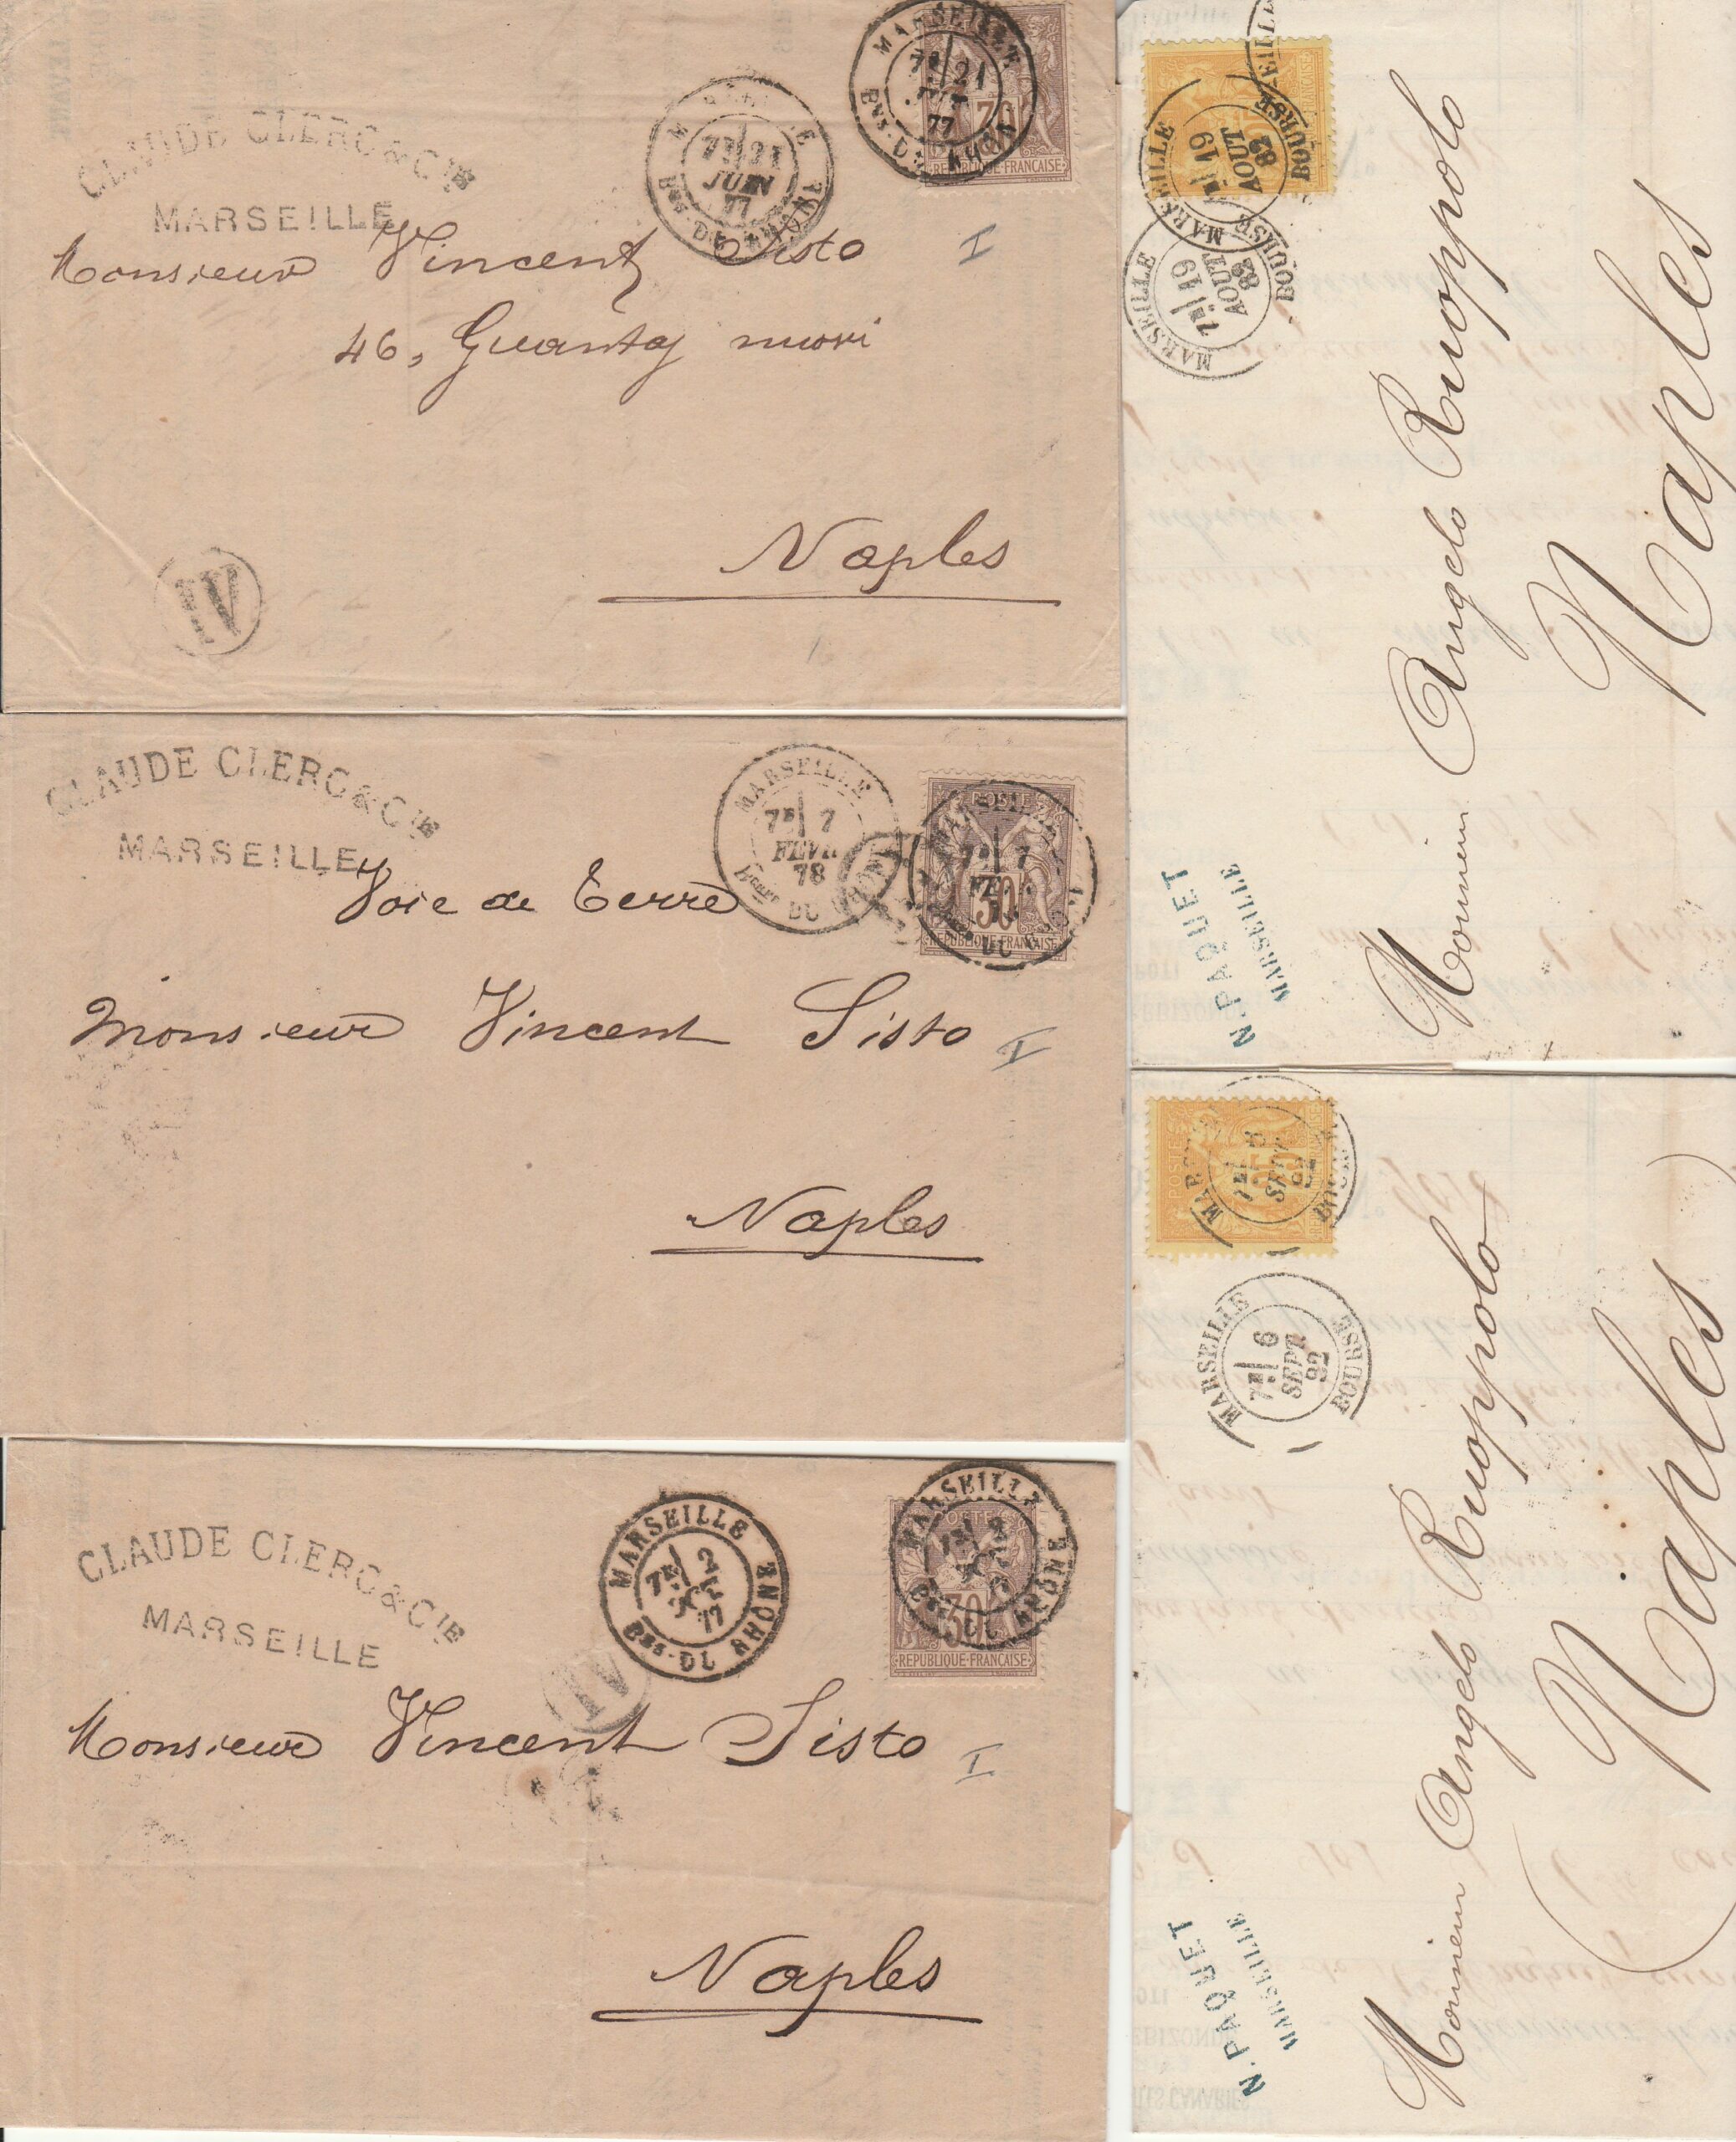 CLAUDE CLERC & CIE
MARSEILLE
MARSEILLE
7E 21
JUIN
77
BES-DU-RHONE
MARSEILLE
7E 21
77
BES-DU-RHONE
REPUBLIQUE-FRANCAISE
Monsieur Vincent Sisto I
46, Guantaj nuovi
Naples
IV
CLAUDE CLERC & CIE
MARSEILLE
MARSEILLE
7E 7
FEVR
78
POSTES
30
REPUBLIQUE-FRANCAISE
Voie de Terre
Monsieur Vincent Sisto I
Naples
CLAUDE CLERC & CIE
MARSEILLE
MARSEILLE
7E 2
77
BES-DU RHONE
MARSEILLE
RHONE
30
REPUBLIQUE-FRANCAISE
IV
Monsieur Vincent Sisto I
Naples
MARSEILLE
7E 19
AOUT
82
BOURSE
MARSEILLE
7E 19
AOUT
82
BOURSE
N. PAQUET
MARSEILLE
Monsieur Angelo Ruoppolo
Naples
POSTES
25
SEPT
MARSEILLE
7E 6
SEPT
82
BOURSE
N. PAQUET
MARSEILLE
Monsieur Angelo Ruoppolo
Naples